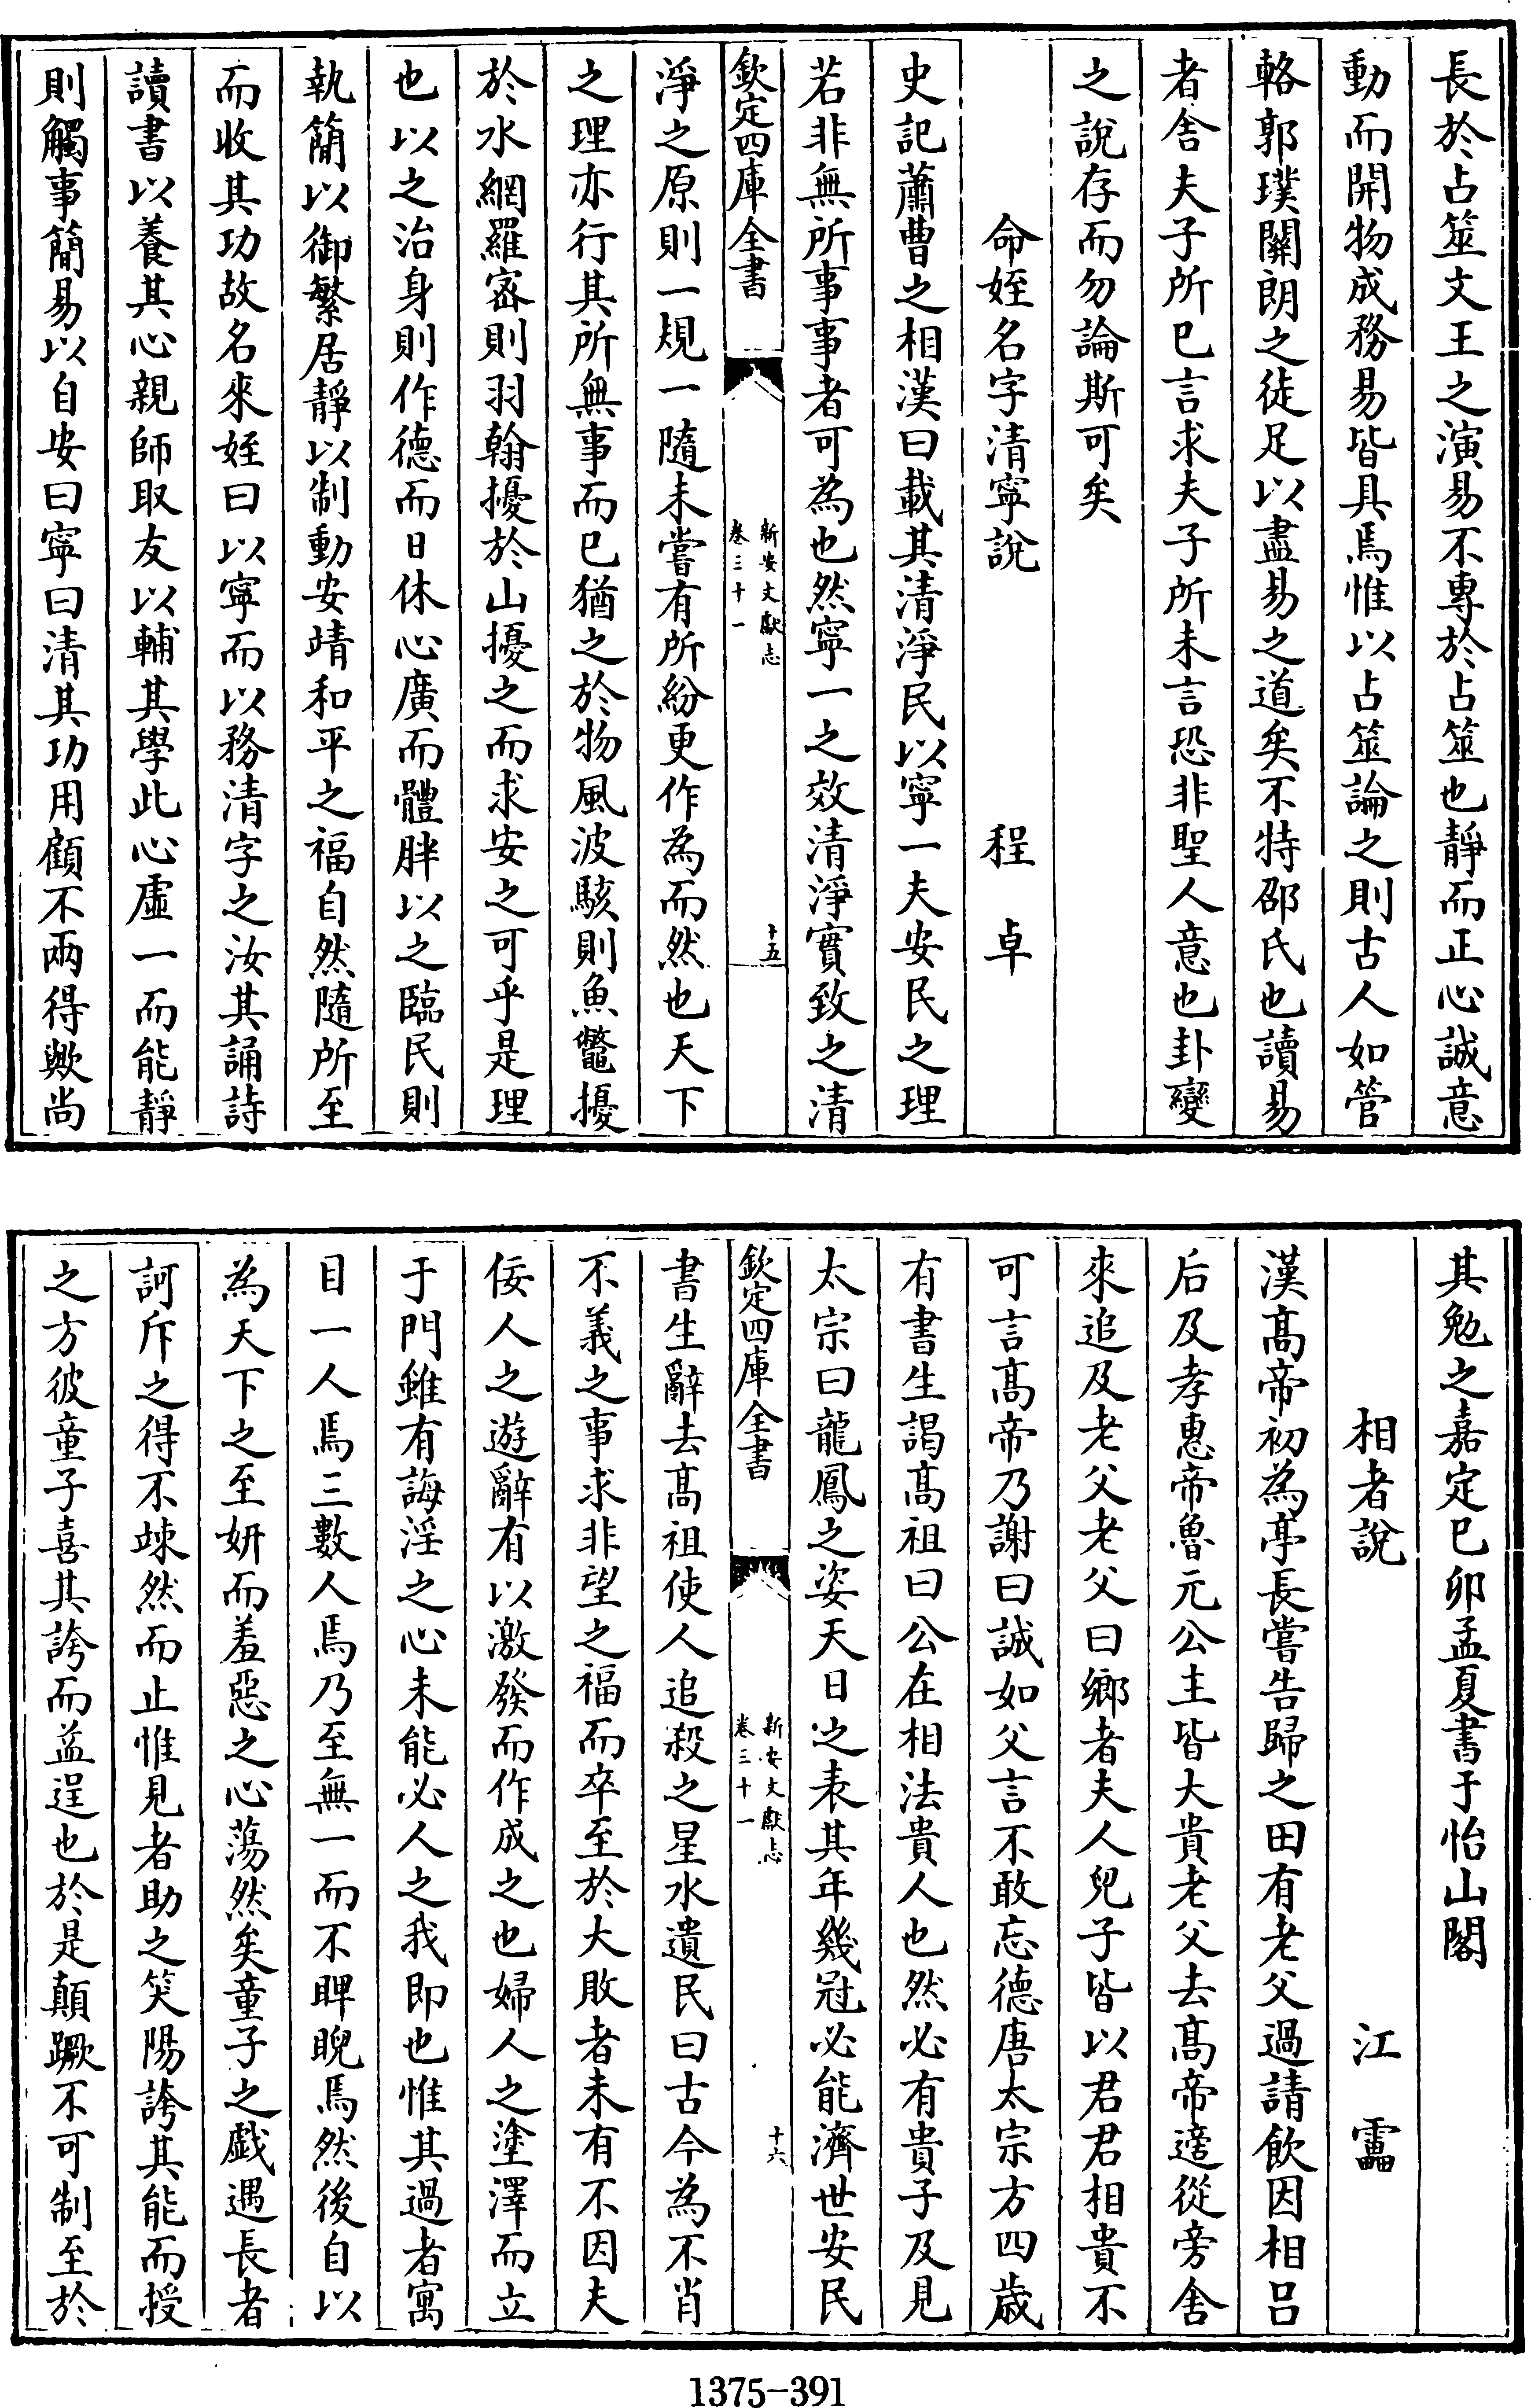 長於占筮文王之演易不專於占筮也靜而正心誠意
動而開物成務易皆具焉惟以占筮論之則古人如管
輅郭璞關朗之徒足以盡易之道矣不特邵氏也讀易
者舍夫子所已言求夫子所未言恐非聖人意也卦變
之說存而勿論斯可矣
命姪名字清寧說　程卓
史記蕭曹之相漢曰載其清淨民以寧一夫安民之理
若非無所事事者可為也然寧一之效清淨實致之清
欽定四庫全書
新安文獻志
卷三十一
十五
淨之原則一規一隨未嘗有所紛更作為而然也天下
之理亦行其所無事而已猶之於物風波駭則魚鼈擾
於水網羅宻則羽翰擾於山擾之而求安之可乎是理
也以之治身則作德而日休心廣而體胖以之臨民則
執簡以御繁居靜以制動安靖和平之福自然隨所至
而收其功故名來姪曰以寧而以務清字之汝其誦詩
讀書以養其心親師取友以輔其學此心虛一而能靜
則觸事簡易以自安曰寧曰清其功用顧不兩得歟尚
其勉之嘉定己卯孟夏書于怡山閣
相者說　江靁
漢髙帝初為亭長嘗告歸之田有老父過請飲因相呂
后及孝惠帝魯元公主皆大貴老父去髙帝適從旁舍
來追及老父老父曰鄉者夫人兒子皆以君君相貴不
可言髙帝乃謝曰誠如父言不敢忘德唐太宗方四歲
有書生謁髙祖曰公在相法貴人也然必有貴子及見
太宗曰龍鳳之姿天日之表其年幾冠必能濟世安民
欽定四庫全書
新安文獻志
卷三十一
十六
書生辭去髙祖使人追殺之星水遺民曰古今為不肖
不義之事求非望之福而卒至於大敗者未有不因夫
佞人之遊辭有以激發而作成之也婦人之塗澤而立
于門雖有誨淫之心未能必人之我即也惟其過者寓
目一人焉三數人焉乃至無一而不睥睨焉然後自以
為天下之至妍而羞惡之心蕩然矣童子之戲遇長者
訶斥之得不竦然而止惟見者助之笑陽誇其能而授
之方彼童子喜其誇而益逞也於是顛蹶不可制至於
1375-391